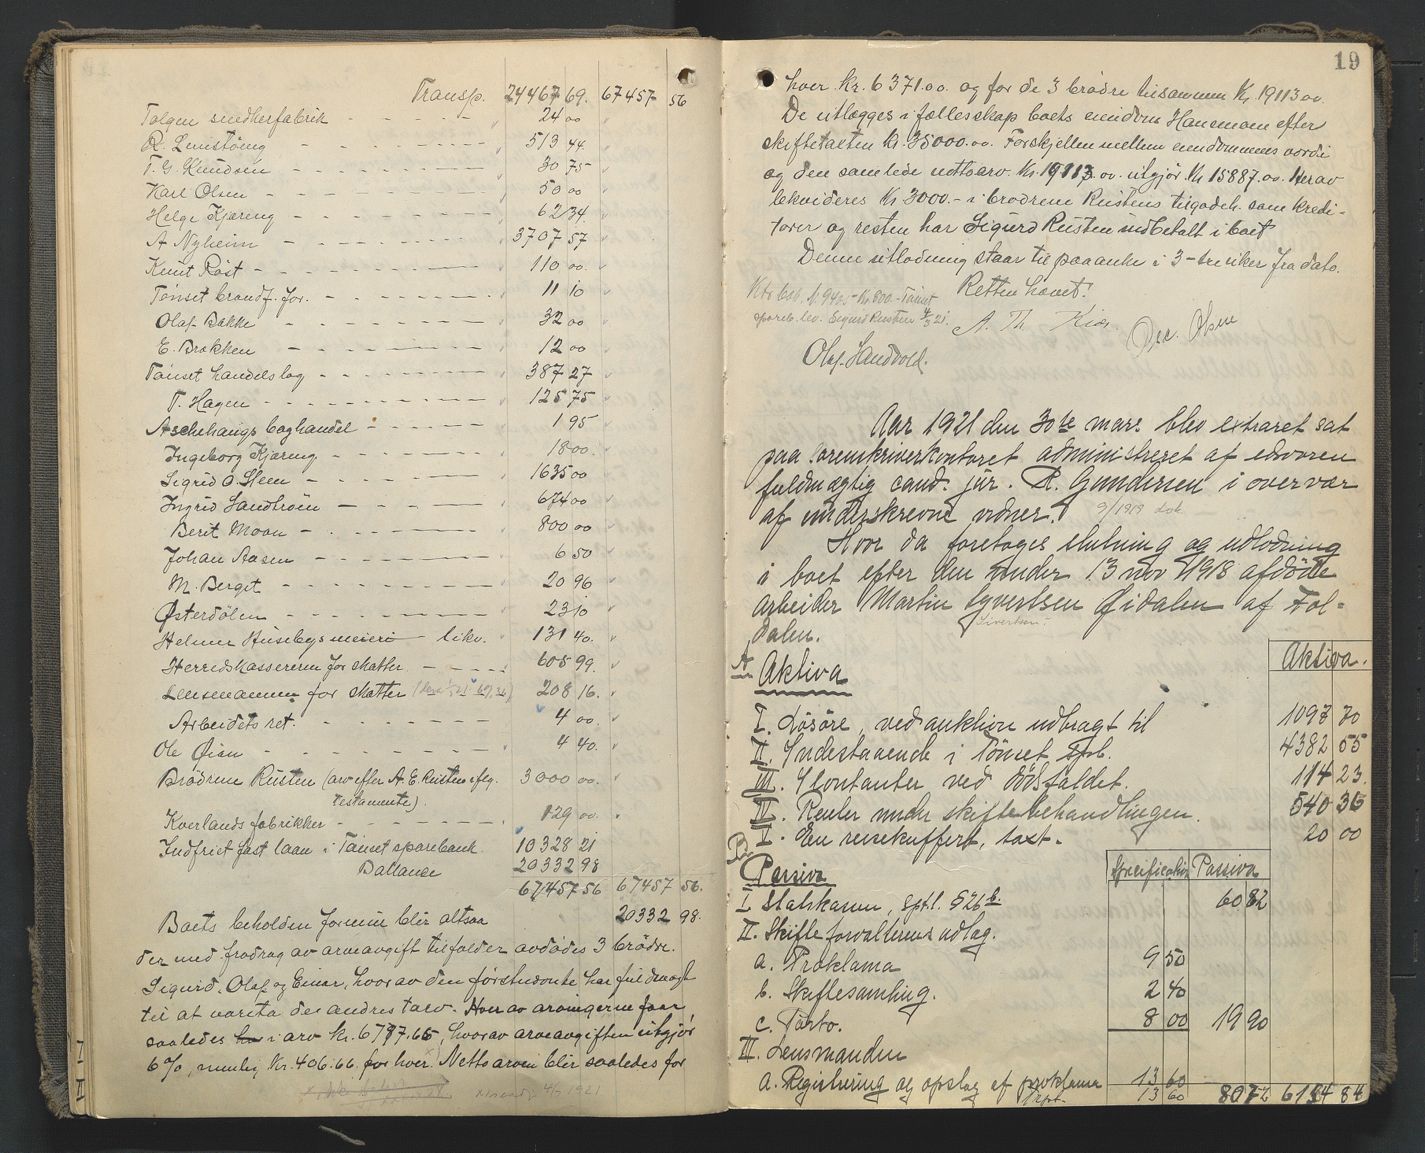 Transp. 24467 69. 67457 56
Tolgen smedherfabrik - - - - - 24 00
R. Lunstöeng - - - - - 513 44
T. G. Knudsen - - - - - 30 75
Karl Olsen - - - - - 50 00
Helge Kjæreng - - - - - 62 34.
A Nyheim - - - - - 3707 57
Knut Röst - - - - - 110 00.
Tönset brandf. for. - - - - - 11 10
Olaf Bakke - - - - - 32 00
E. Brækken - - - - - 12 00
Tönset handelslag - - - - - 387 27
T. Hagen - - - - - 125 75
Aschehaugs boghandel - - - - - 1 95
Ingeborg Kjæreng - - - - - 18 00.
Sigrid O. Steen - - - - - 1635 00
Ingrid Sandtröen - - - - - 674 00
Berit Moan - - - - - 800 00
Johan Aasen - - - - - 6 50
M. Berget - - - - - 20 96
Østerdölen - - - - - 23 10
Helmer Husebys meieri - likv. - 131 40.
Herredskassereren for skatter - - - - 605 99.
Lensmannen for skatter 208 16.
Arbeidets ret - - - - - 4 00.
Ole Øian - - - - - 4 40.
Brödrene Rusten (arv efter A. E. Rusten iflg. 3000 00.
testamente).
Kverlands fabrikker - - - - - 129 00.
Indfriet fast laan i Tönset sparebank 10328 21
Ballance 20332 98
67457 56 67457 56.
Boets beholdne formue blir altsaa 20332 98.
der med fradrag av arveavgift tilfalder avdödes 3 brödre.
Sigurd, Olaf og Einar, hvorav den förstnevnte har fuldmagt
til at vareta de andres tarv. Hver av arvingerne faar
saaledes i arv kr. 6777.66, hvorav arveavgiften utgjör
6%, nemlig Kr. 406.66 for hver. Nettoarven blir saaledes for
19
hver Kr. 6371.00 og for de 3 brödre tilsammen Kr. 19113 00.
De utlægges i fællesskap boets eiendom Hansmoen efter
skiftetaxten Kr. 35000.00. Forskjellen mellem eiendommens værdi
og den samlede nettoarv Kr. 19113.00. utgjör Kr. 15887.00. Herav
likvideres Kr 3000.- i brödrene Rustens tilgodeh. som kredi-
torer og resten har Sigurd Rusten indbetalt i boet
Denne utlodning staar til paaanke i 3-tre uker fra dato.
Retten hævet!
spareb. lev. Sigurd Rusten
A. Th. Kiær
Per. Olsen
Olaf Sandvold.
Aar 1921 den 30te mars blev extraret sat
paa sorenskriverkontoret administreret af edsvoren
fuldmægtig cand. jur. R. Gundersen i overvær
af underskrevne vidner. 9/1919 dok.
Hvor da foretoges slutning og udlodning
i boet efter den under 13 nov 1918 afdöde
arbeider Martin Syvertsen Øidalen af Fol-
Sivertsen?
dalen.
Aktiva.
A Aktiva
I. Lösöre, ved auktion udbragt til 1097 30
II. Indestaaende i Tönset Spb. 4382 55
III. Kontanter ved dödsfaldet. 114 23.
IV. Renter under skiftebehandlingen. 540 36
V. En reisekuffert, taxt. 20 00
B. Passiva Specification Passiva
I Statskassen, sptl. § 26 b. 60 82
II. Skifteforvalterens udlæg.
a. Proklama 9 50
b. Skiftesamling. 2 40
c. Porto. 8 00 19 90
III. Lensmanden
a. Registrering og opslag af proklama 13 60
Trpt. 13 60 80 72 6154 84